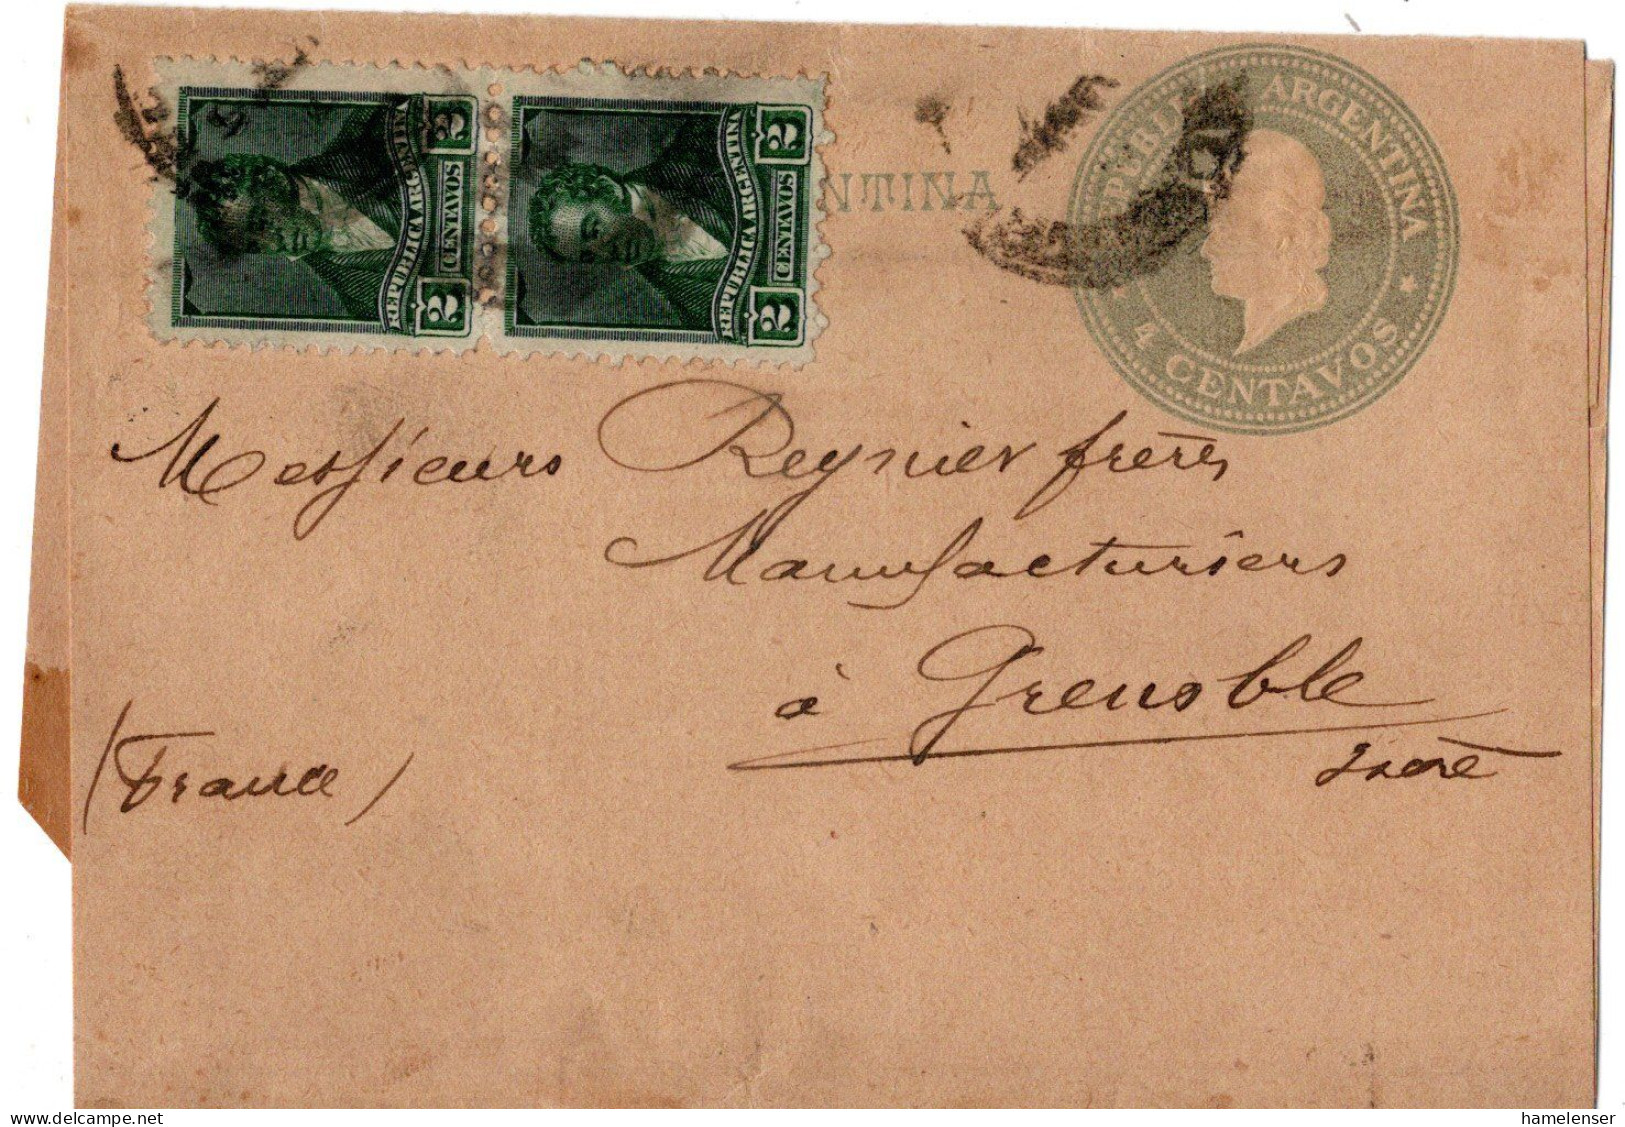 REPUBLICA ARGENTINA
2 CENTAVOS 2
REPUBLICA ARGENTINA
2 CENTAVOS 2
NTINA
REPUBLICA ARGENTINA
4 CENTAVOS
Messieurs Reynier frères
Manufacturiers
à Grenoble
Isère
(France)
hamelenser